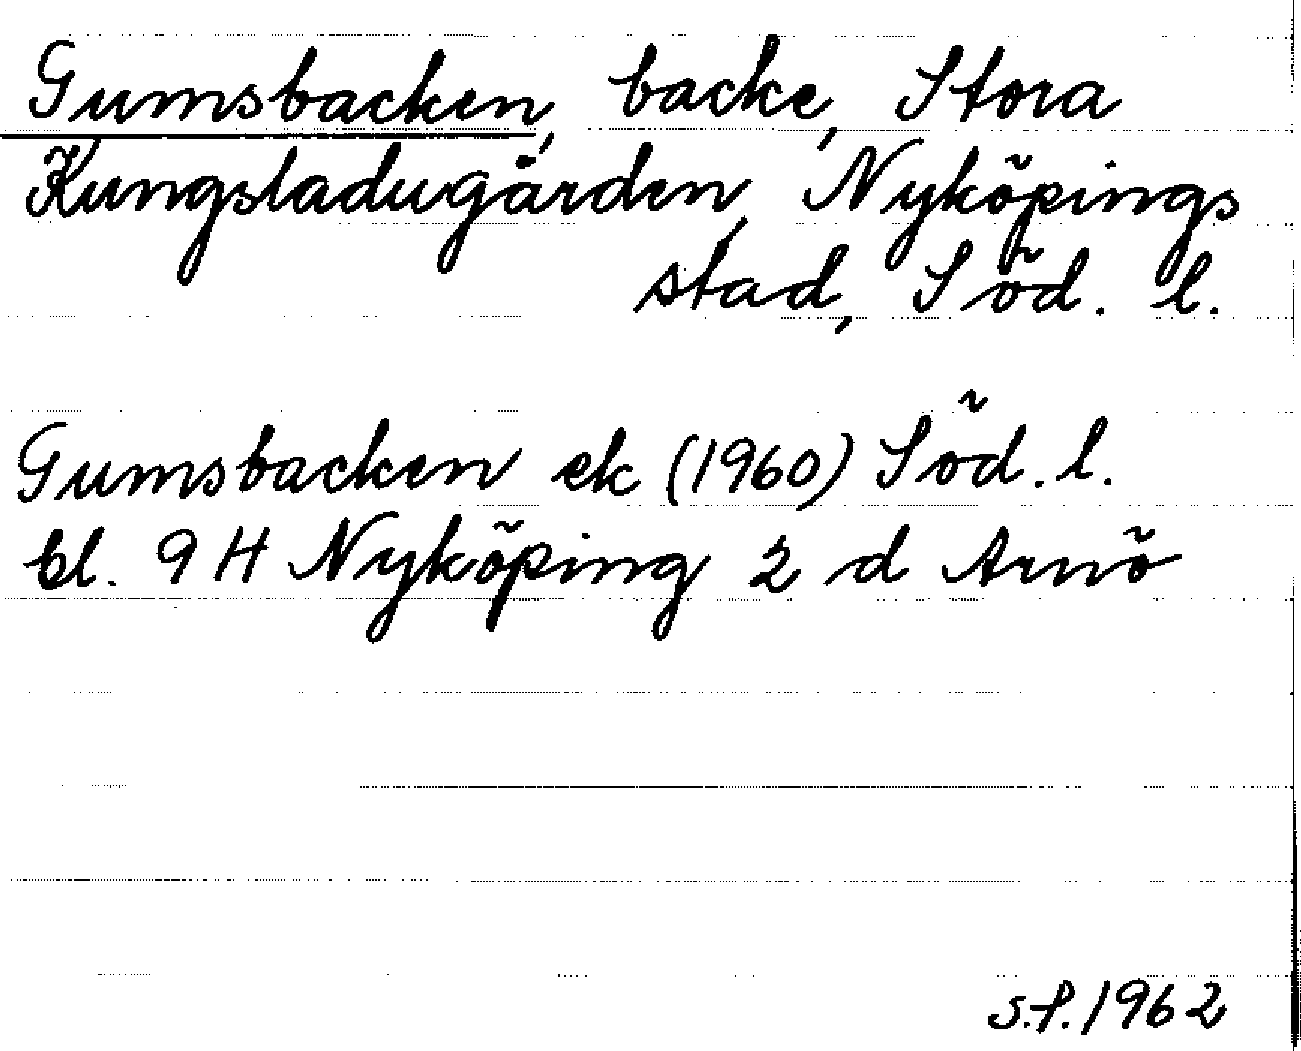 Gumsbacken, backe, Stora
Kungsladugården, Nyköpings
stad, Söd. l.
Gumsbacken ek (1960) Söd. l.
bl. 9 H Nyköping 2 d Arnö
s.f. 1962